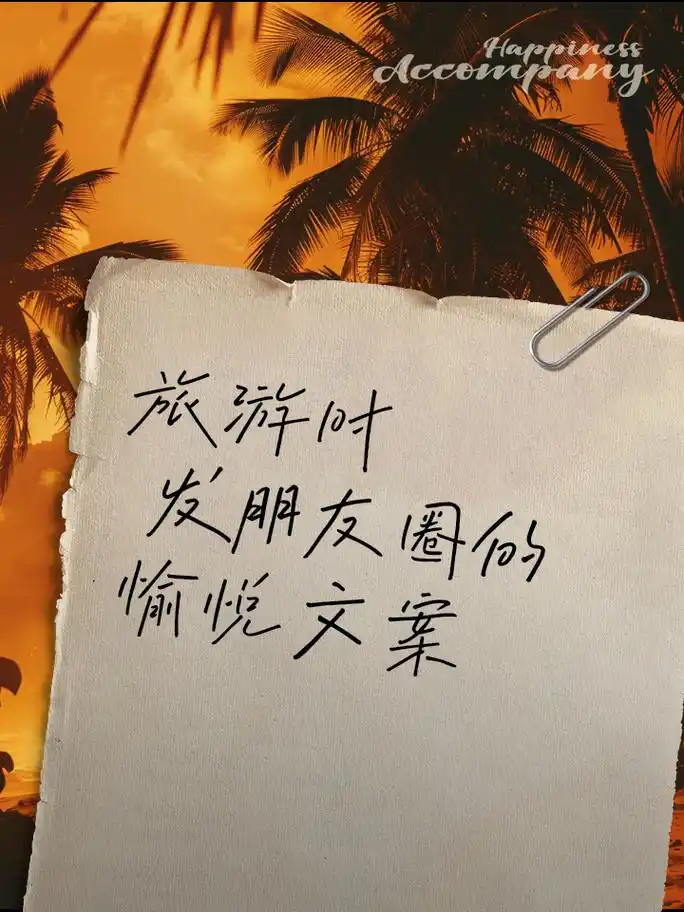 Happiness
Accompany
旅游时
发朋友圈的
愉悦文案